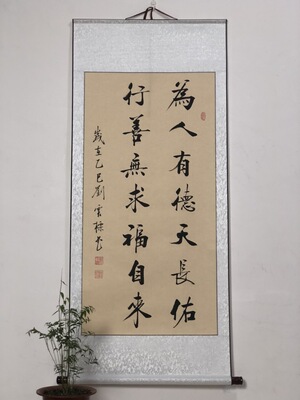 為人有德天長佑
行善無求福自來
歲在乙巳劉雲樑書